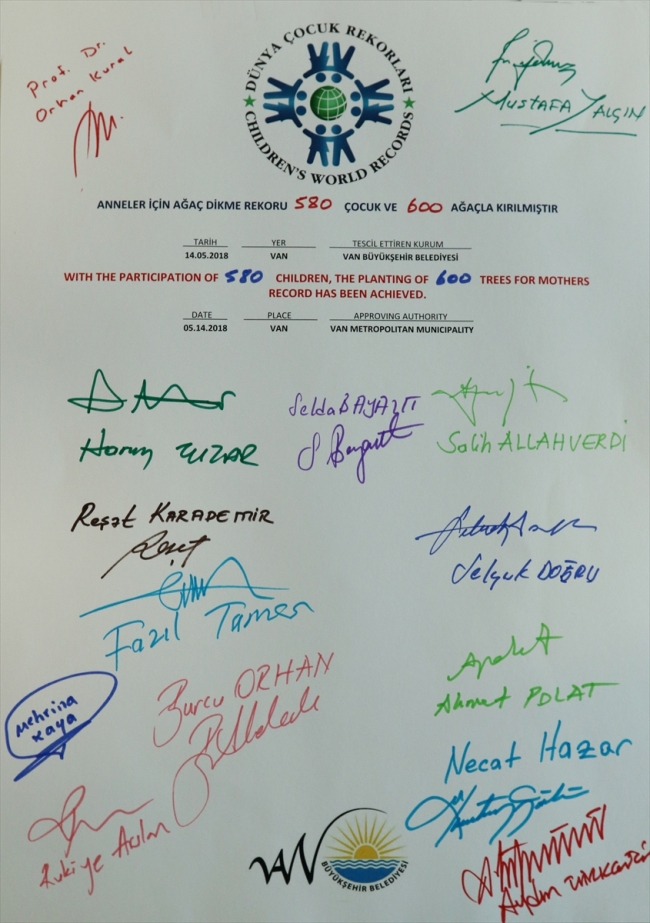 Prof. Dr.
Orhan Kural
MUSTAFA YALÇIN
DÜNYA ÇOCUK REKORLARI
CHILDREN'S WORLD RECORDS
ANNELER İÇİN AĞAÇ DİKME REKORU 580 ÇOCUK VE 600 AĞAÇLA KIRILMIŞTIR
TARİH YER TESCİL ETTİREN KURUM
14.05.2018 VAN VAN BÜYÜKŞEHİR BELEDİYESİ
WITH THE PARTICIPATION OF 580 CHILDREN, THE PLANTING OF 600 TREES FOR MOTHERS
RECORD HAS BEEN ACHIEVED.
DATE PLACE APPROVING AUTHORITY
05.14.2018 VAN VAN METROPOLITAN MUNICIPALITY
Selda BAYAZIT
Salih ALLAHVERDİ
Reşat KARADEMİR
Selçuk DOĞRU
Fazıl Tamer
Burcu ORHAN
Mehrina
Kaya
Ahmet POLAT
Necat Hazar
Rukiye
Aydın
VAN
BÜYÜKŞEHİR BELEDİYESİ